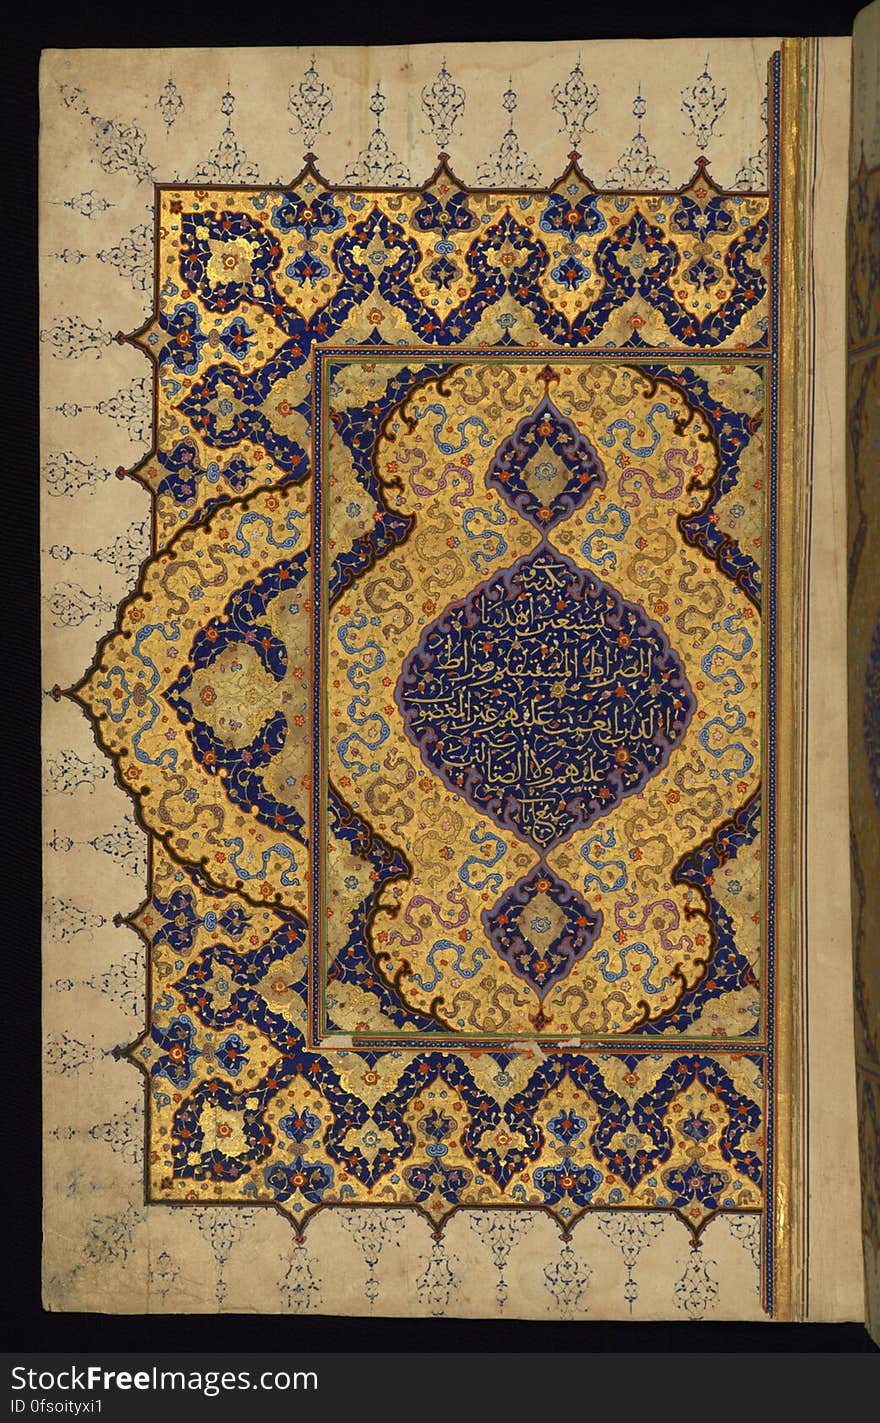 نستعين اهدنا
الصراط المستقيم صراط
الذين انعمت عليهم غير المغضوب
عليهم ولا الضالين
سبع ايات
StockFreeImages.com
ID 0fsoityxi1